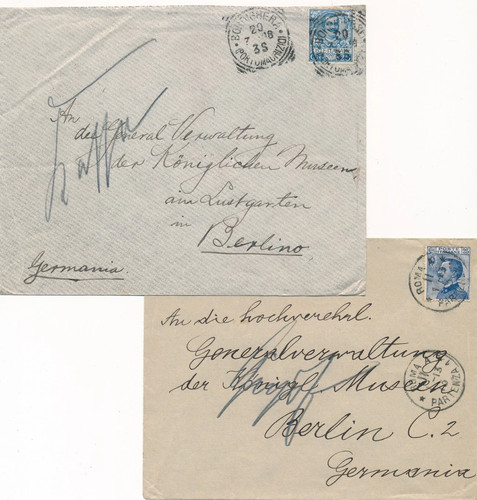 BORDIGHERA
20
3S
(PORTO MAURIZIO)
20
3S
An
die General Verwaltung
der Königlichen Museen
am Lustgarten
in
Berlino
Germania.
ROMA
ROMA
* PARTENZA *
An die hochverehrl.
Generalverwaltung
der Königl. Museen
Berlin C. 2
Germania